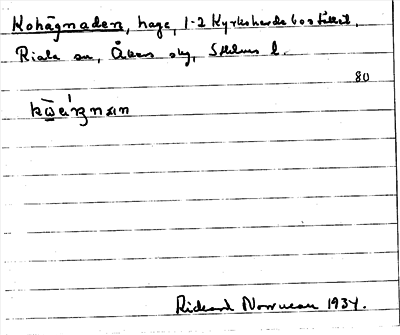 Kohägnaden, hage, 1-2 Kyrkoherdebostället,
Riala sn, Åkers skg, Sthlms l.
80
Rickard Norrman 1937.